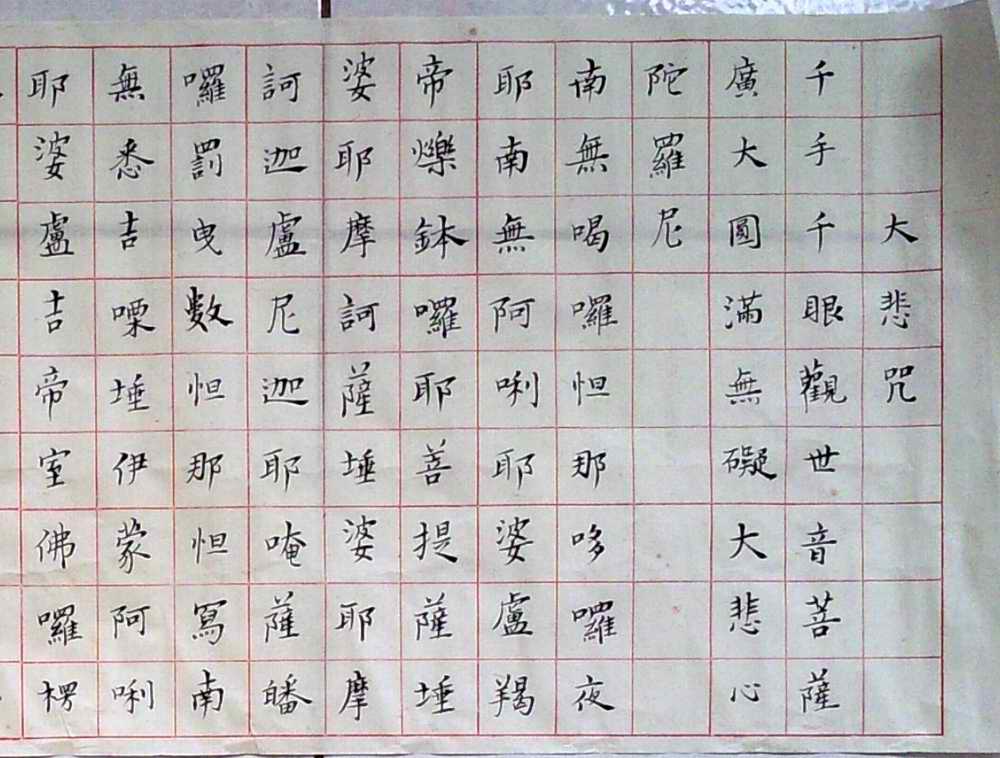 大悲咒
千手千眼觀世音菩薩
廣大圓滿無礙大悲心
陀羅尼
南無喝囉怛那哆囉夜
耶南無阿唎耶婆盧羯
帝爍鉢囉耶菩提薩埵
婆耶摩訶薩埵婆耶摩
訶迦盧尼迦耶唵薩皤
囉罰曳數怛那怛寫南
無悉吉㗚埵伊蒙阿唎
耶婆盧吉帝室佛囉楞